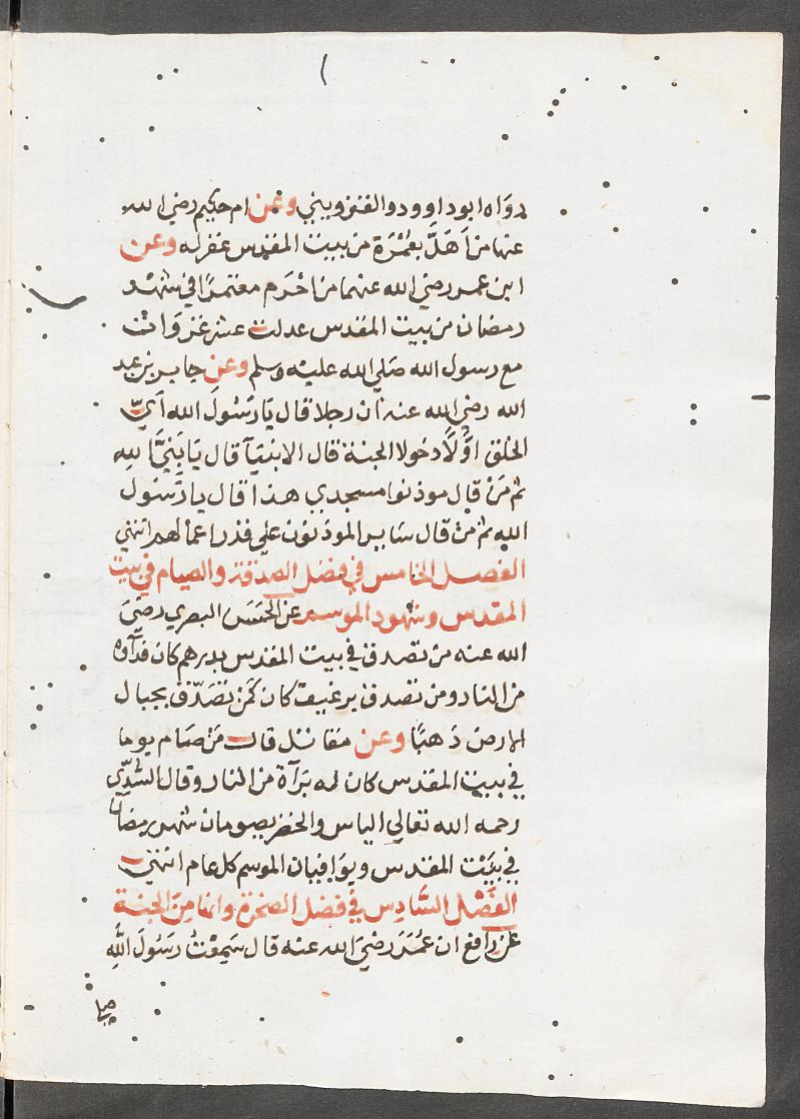 رواه ابوداوود والقزويني وعن ام حكيم رضي الله
عنها من اَهَلَّ بعُمْرَة من بيت المقدس غفرله وعن
ابن عمر رضي الله عنهما من احْرَم معتمرًا في شهر
رمضان من بيت المقدس عدلت عشر غزوات
مع رسول الله صَلي الله عليه وسلم وعن جابر بن عبد
الله رضي الله عنه ان رجلا قال يَا رَسُولَ الله اَيّ
الخلق اوَّلاً دخولا الجنة قال الانبيآ قال يَا نَبيَّ الله
ثم مَنْ قال موذنوا مسجدي هذا قال يا رَسُول
الله ثم من قال سَاير الموذنون علي قدر اعمالهم انتهي
الفصل الخامس في فضل الصدقة والصيام في بيت
المقدس وشهود الموسم عن الحسَن البصري رضيَ
الله عنه من تصدق في بيت المقدس بدرهم كان فدآوه
من النار ومن تصدق برغيف كان كَمن تصَدّق بجبال
الارض ذهبًا وعن مقاتل قال مَن صَام يوما
في بيت المقدس كان له بَرَآة من النار وقال السُّدّي
رحمه الله تعالي الياس والخضر يصومان شهر رمضان
في بيَتْ المقدس ويوَافيان الموسم كل عام انتهي
الفَصْل السَّادِس في فضل الصخرة وانها مِنَ الجنة
عن رافع ان عُمَرَ رضيَ الله عنه قال سَمِعْتُ رَسُولَ الله